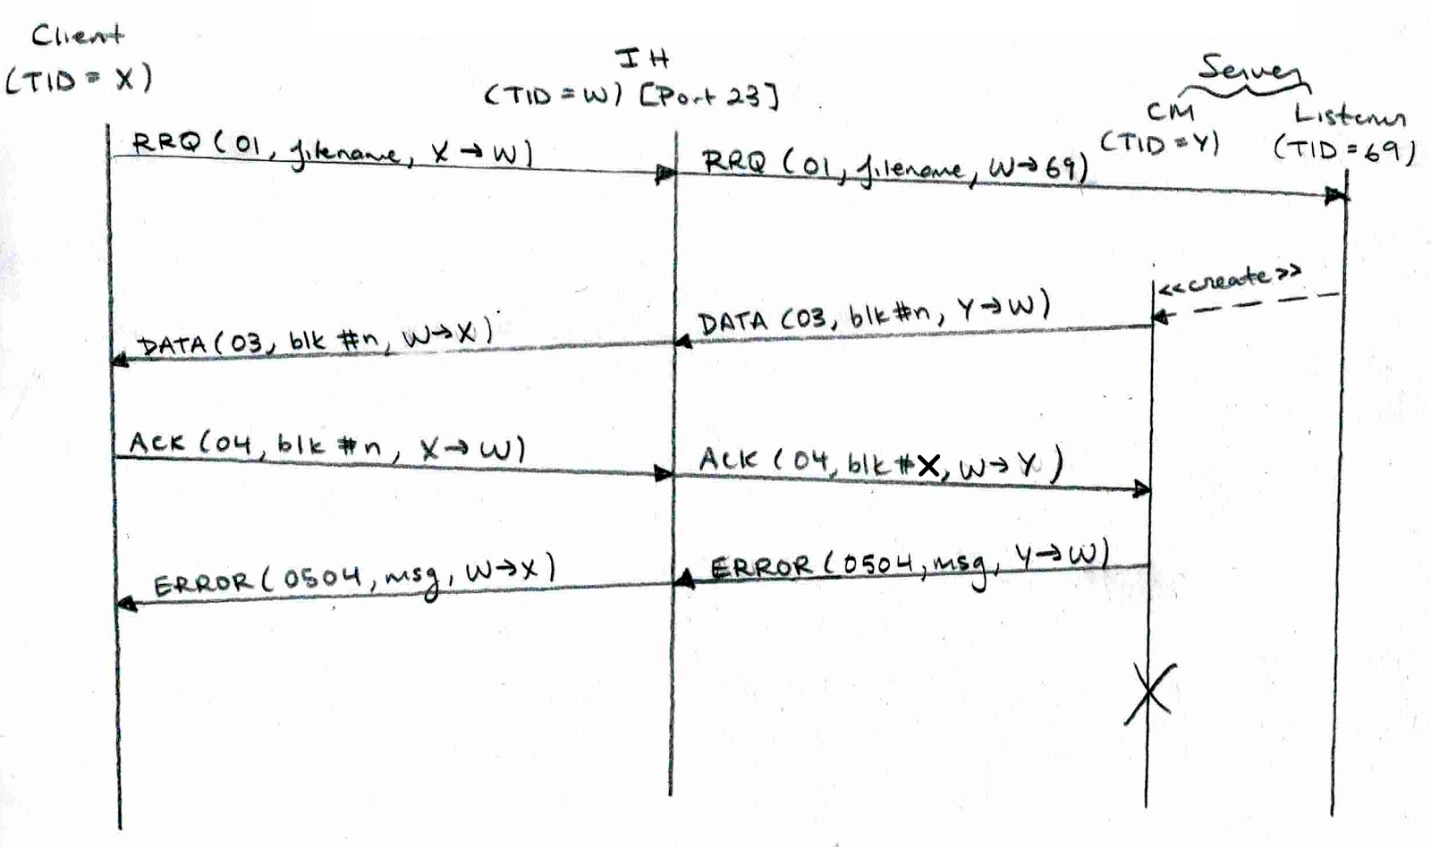 Client
(TID = X)
IH
(TID = W) [Port 23]
Server
CM
(TID = Y)
Listener
(TID = 69)
RRQ (01, filename, X → W)
RRQ (01, filename, W → 69)
<<create>>
DATA (03, blk #n, Y → W)
DATA (03, blk #n, W → X)
ACK (04, blk #n, X → W)
ACK (04, blk #X, W → Y)
ERROR (0504, msg, Y → W)
ERROR (0504, msg, W → X)